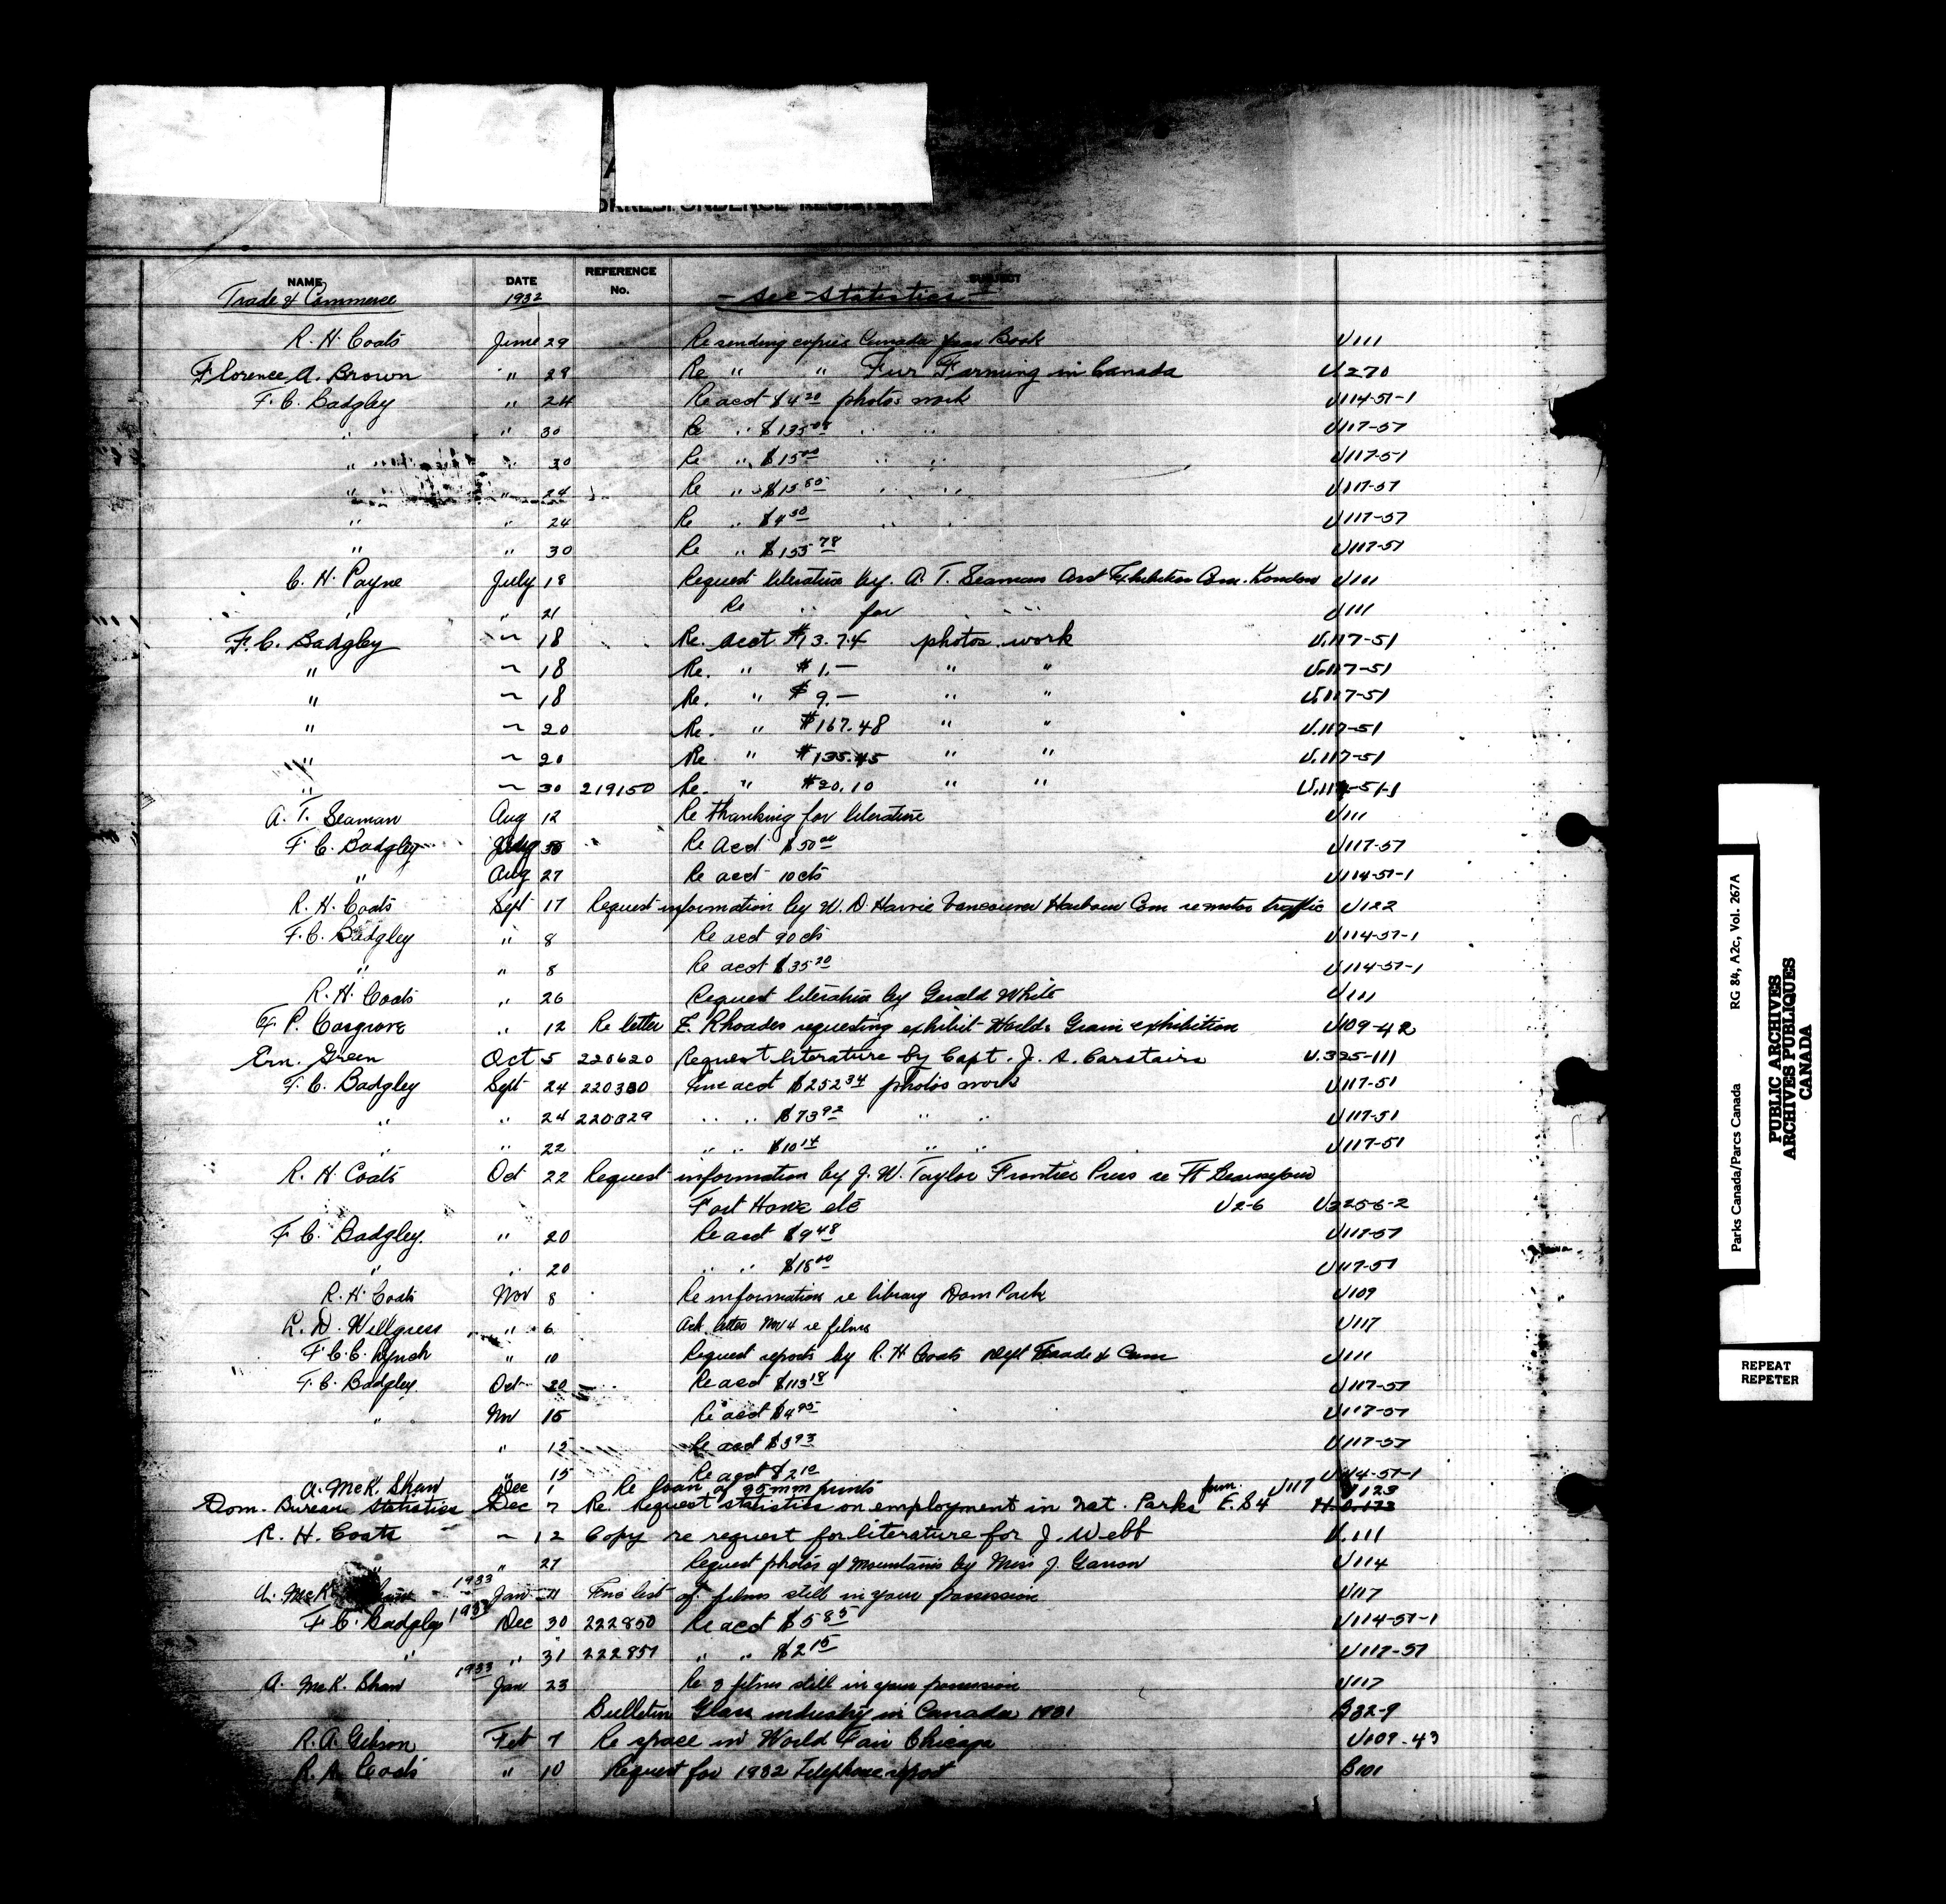 CORRESPONDENCE REGISTER
NAME DATE REFERENCE No. SUBJECT
Trade & Commerce 1932 - See - Statistics -
R. H. Coats June 29 Re sending copies Canada Year Book U111
Florence A. Brown " 29 Re " " Fur Farming in Canada U270
F. C. Badgley " 24 Re acct $4.20 photos work U114-51-1
" " 30 Re " $135.05 " " U117-51
" " 30 Re " $15.00 " " U117-51
" " 24 Re " $15.60 " " U117-51
" " 24 Re " $4.50 " " U117-51
" " 30 Re " $155.78 U117-51
C. H. Payne July 18 Request literature by A. T. Seaman Asst Exhibition Com. London U111
" " 21 Re " for " " U111
F. C. Badgley ~ 18 Re. acct $13.74 photos work U.117-51
" ~ 18 Re. " $1.— " " U.117-51
" ~ 18 Re. " $9.— " " U.117-51
" ~ 20 Re. " $167.48 " " U.117-51
" ~ 20 Re " $135.45 " " U.117-51
" ~ 30 219150 Re. " $20.10 " " U.114-51-1
A. T. Seaman Aug 12 Re thanking for literature U111
F. C. Badgley July 30 Re Acct $50.00 U117-51
" Aug 27 Re acct 10cts U114-51-1
R. H. Coats Sept 17 Request information by W. D Harvie Vancouver Harbour Com re motor traffic U122
F. C. Badgley " 8 Re acct 90cts U114-51-1
" " 8 Re acct $35.20 U114-51-1
R. H. Coats " 26 Request literature by Gerald White U111
P. Cosgrove " 12 Re letter E. Rhoades requesting exhibit Worlds Grain exhibition U109-42
Ern. Green Oct 5 220620 Request literature by Capt. J. S. Carstairs U.325-111
F. C. Badgley Sept 24 220330 Enc acct $252.34 photos work U117-51
" " 24 220329 " " $73.92 " " U117-51
" " 22 " " $10.14 " " U117-51
R. H Coats Oct 22 Request information by J. W. Taylor Frontier Press re Ft Beausejour
Fort Howe etc U2-6 U325-6-2
F C. Badgley. " 20 Re acct $9.48 U117-51
" " 20 " " $18.00 U117-51
R. H. Coats Nov 8 Re information re library Dom Park U109
L. D. Willgress " 6 Ack. letter Nov 4 re films U117
F. C. C. Lynch " 10 Request reports by R. H Coats Dept Trade & Com U111
F. C. Badgley. Oct 20 Re acct $113.18 U117-51
" Nov 15 Re acct $4.95 U117-51
" 15 Re acct $3.93 U117-51
" 15 Re acct $2.10 U114-51-1
A. McK. Shaw Dec 1 Re loan of 35mm prints U117 U123
Dom. Bureau Statistics Dec 7 Re. Request statistics on employment in Nat. Parks E.S4
R. H. Coats ~ 12 Copy re request for literature for J. Webb U.111
" 27 Request photos of Mountains by Miss J. Garson U114
A. McK. Shaw 1933 Jan 11 Enc list of films still in your possession U117
F C. Badgley 1932 Dec 30 222850 Re acct $5.85 U114-51-1
" " 31 222851 " " $2.15 U117-51
A. McK. Shaw 1933 Jan 23 Re 3 films still in your possession U117
Bulletin Glass industry in Canada 1931 B32-9
R. A. Gibson Feb 7 Re space in World Fair Chicago U109-43
R. H. Coats " 10 Request for 1932 Telephone report B101
Parks Canada/Parcs Canada RG 84, A2c, Vol. 267A
PUBLIC ARCHIVES
ARCHIVES PUBLIQUES
CANADA
REPEAT
REPETER